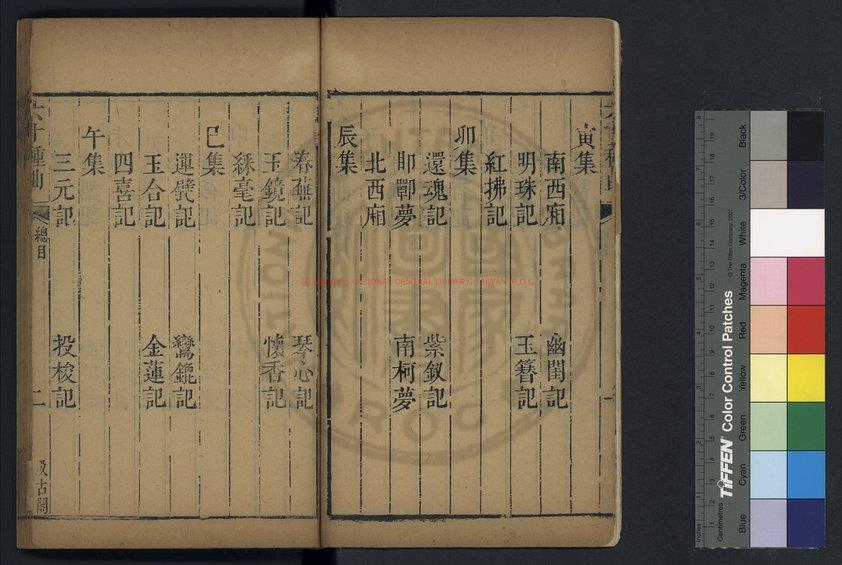 寅集
南西廂 幽閨記
明珠記 玉簪記
紅拂記
卯集
還魂記 紫釵記
邯鄲夢 南柯夢
北西廂
辰集
春蕪記 琴心記
玉鏡記 懷香記
綵毫記
巳集
運甓記 鸞鎞記
玉合記 金蓮記
四喜記
午集
三元記 投梭記
六十種曲 總目 二 汲古閣
NATIONAL CENTRAL LIBRARY, TAIWAN, R.O.C.
TIFFEN Color Control Patches
© The Tiffen Company, 2007
Centimetres
Inches
Blue
Cyan
Green
Yellow
Red
Magenta
White
3/Color
Black